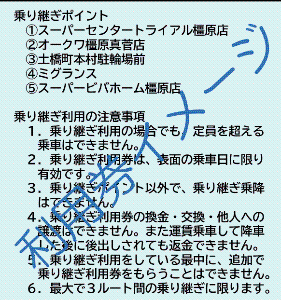 乗り継ぎポイント
①スーパーセンタートライアル橿原店
②オークワ橿原真菅店
③土橋町本村駐輪場前
④ミグランス
⑤スーパービバホーム橿原店
乗り継ぎ利用の注意事項
１．乗り継ぎ利用の場合でも、定員を超える
乗車はできません。
２．乗り継ぎ利用券は、表面の乗車日に限り
有効です。
３．乗り継ぎポイント以外で、乗り継ぎ乗降
はできません。
４．乗り継ぎ利用券の換金・交換・他人への
譲渡はできません。また運賃乗車して降車
した後に後出しされても返金できません。
５．乗り継ぎ利用をしている最中に、追加で
乗り継ぎ利用券をもらうことはできません。
６．最大で３ルート間の乗り継ぎに限ります。
利用券イメージ